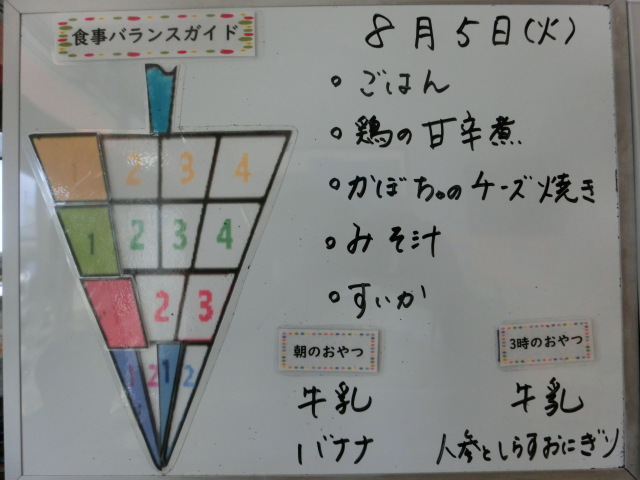 食事バランスガイド
8月5日(火)
1 2 3 4
1 2 3 4
2 3
1 2 1 2
ごはん
鶏の甘辛煮
かぼちゃのチーズ焼き
みそ汁
すいか
朝のおやつ
牛乳
バナナ
3時のおやつ
牛乳
人参としらすおにぎり